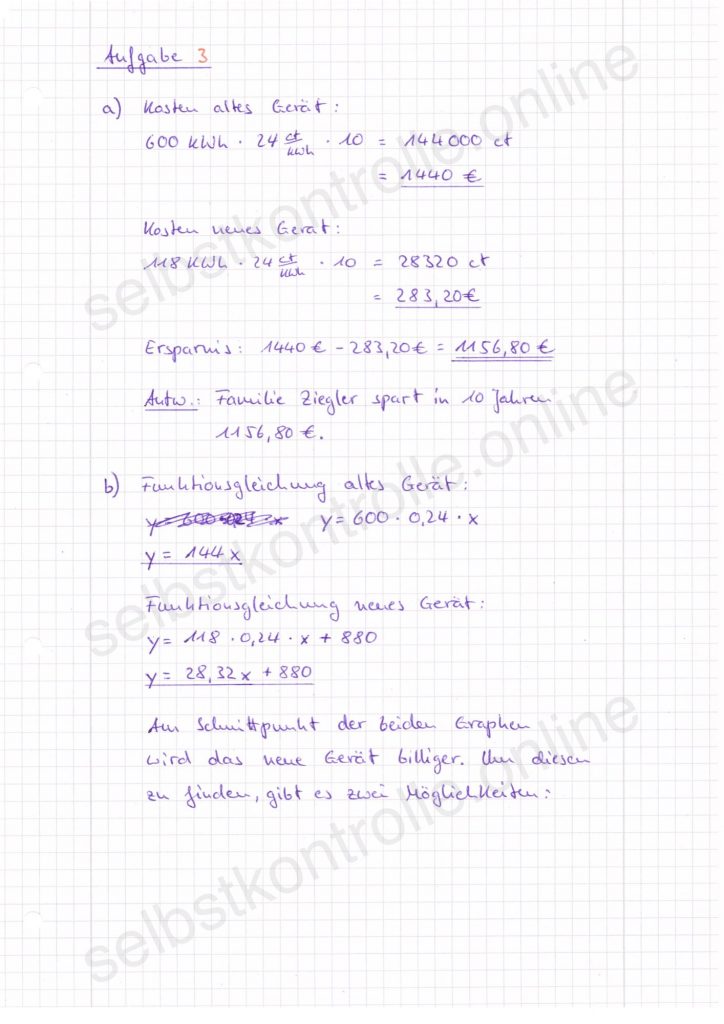 Aufgabe 3
a) Kosten altes Gerät:
600 kWh · 24 ct/kWh · 10 = 144000 ct
= 1440 €
Kosten neues Gerät:
118 kWh · 24 ct/kWh · 10 = 28320 ct
= 283,20€
Ersparnis: 1440€ - 283,20€ = 1156,80 €
Antw.: Familie Ziegler spart in 10 Jahren
1156,80 €.
b) Funktionsgleichung altes Gerät:
y = 600 · 0,24 · x
y = 144x
Funktionsgleichung neues Gerät:
y = 118 · 0,24 · x + 880
y = 28,32x + 880
Am Schnittpunkt der beiden Graphen
wird das neue Gerät billiger. Um diesen
zu finden, gibt es zwei Möglichkeiten:
selbstkontrolle.online
selbstkontrolle.online
selbstkontrolle.online